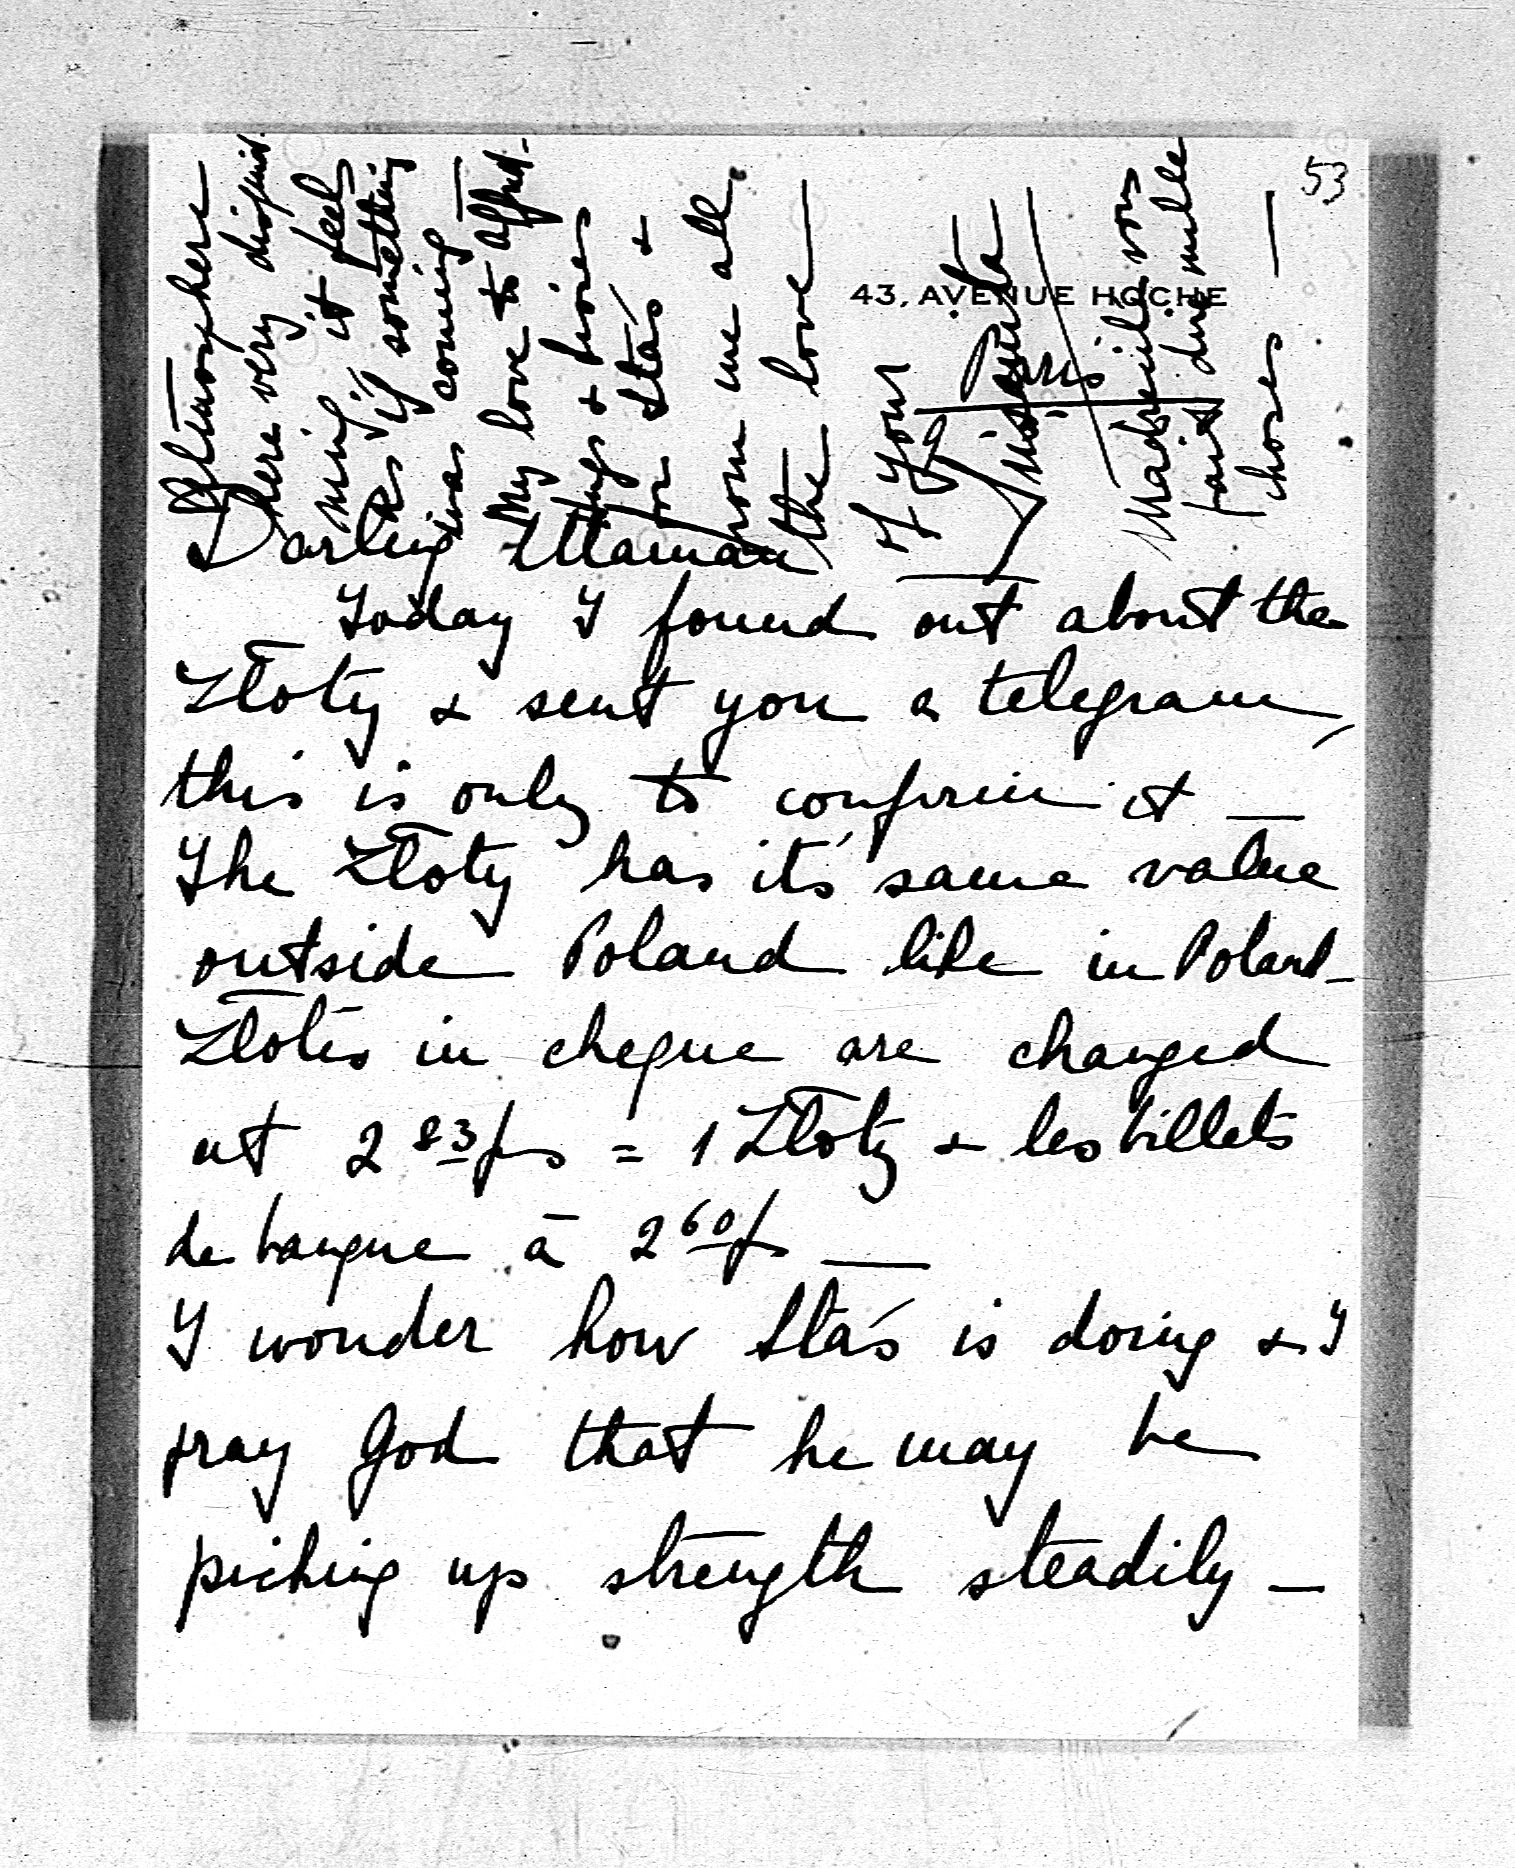 53
43, AVENUE HOCHE
Paris
Darling Maman
Today I found out about the
Złoty & sent you a telegram,
this is only to confirm it —
The Złoty has it's same value
outside Poland like in Poland –
Złotis in cheque are changed
at 2 83 frs = 1 Złoty & les billets
de banque à 2 60 fr —
I wonder how Staś is doing & I
pray God that he may be
picking up strength steadily –
Atmosphere
here very disquie-
ting, it feels
as if something
was coming —
My love to Alfred –
hugs & kisses
for Staś &
from me all
the love —
of your
Madrcile vous
fait dire mille
choses —